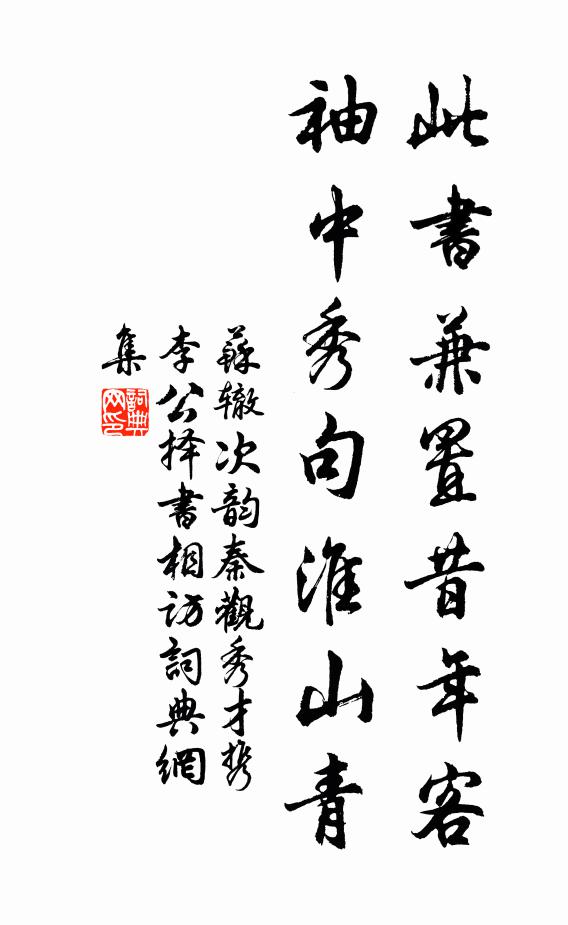 此書兼置昔年客
袖中秀句淮山青
蘇辙次韵秦觀秀才携
李公择書相访詞典網
集
詞典
网印